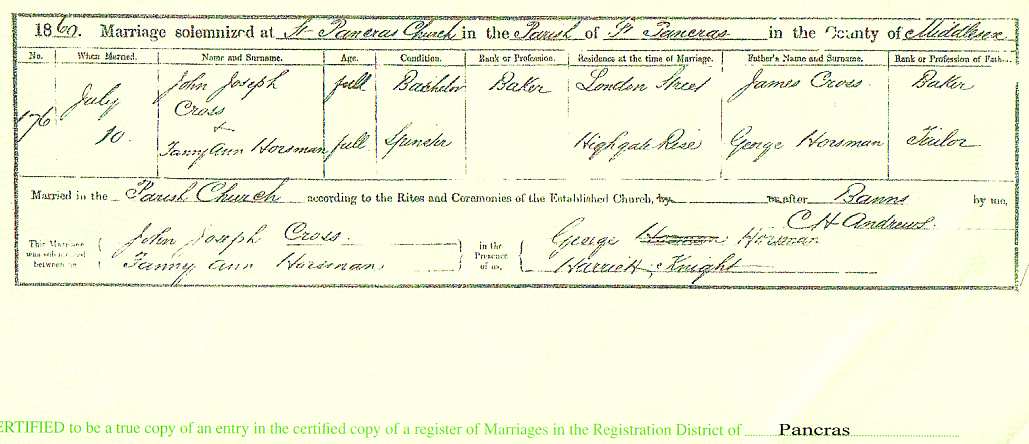 1860. Marriage solemnized at St Pancras Church in the Parish of St Pancras in the County of Middlesex
No. When Married. Name and Surname. Age. Condition. Rank or Profession. Residence at the time of Marriage. Father's Name and Surname. Rank or Profession of Fath...
176 July 10. John Joseph Cross full Bachelor Baker London Street James Cross Baker
+
Fanny Ann Horsman full Spinster Highgate Rise George Horsman Tailor
Married in the Parish Church according to the Rites and Ceremonies of the Established Church, by or after Banns by me,
C H Andrews
This Marriage was solemnized between us, John Joseph Cross
Fanny Ann Horsman
in the Presence of us, George Horsman Horsman
Harriett Knight
CERTIFIED to be a true copy of an entry in the certified copy of a register of Marriages in the Registration District of Pancras